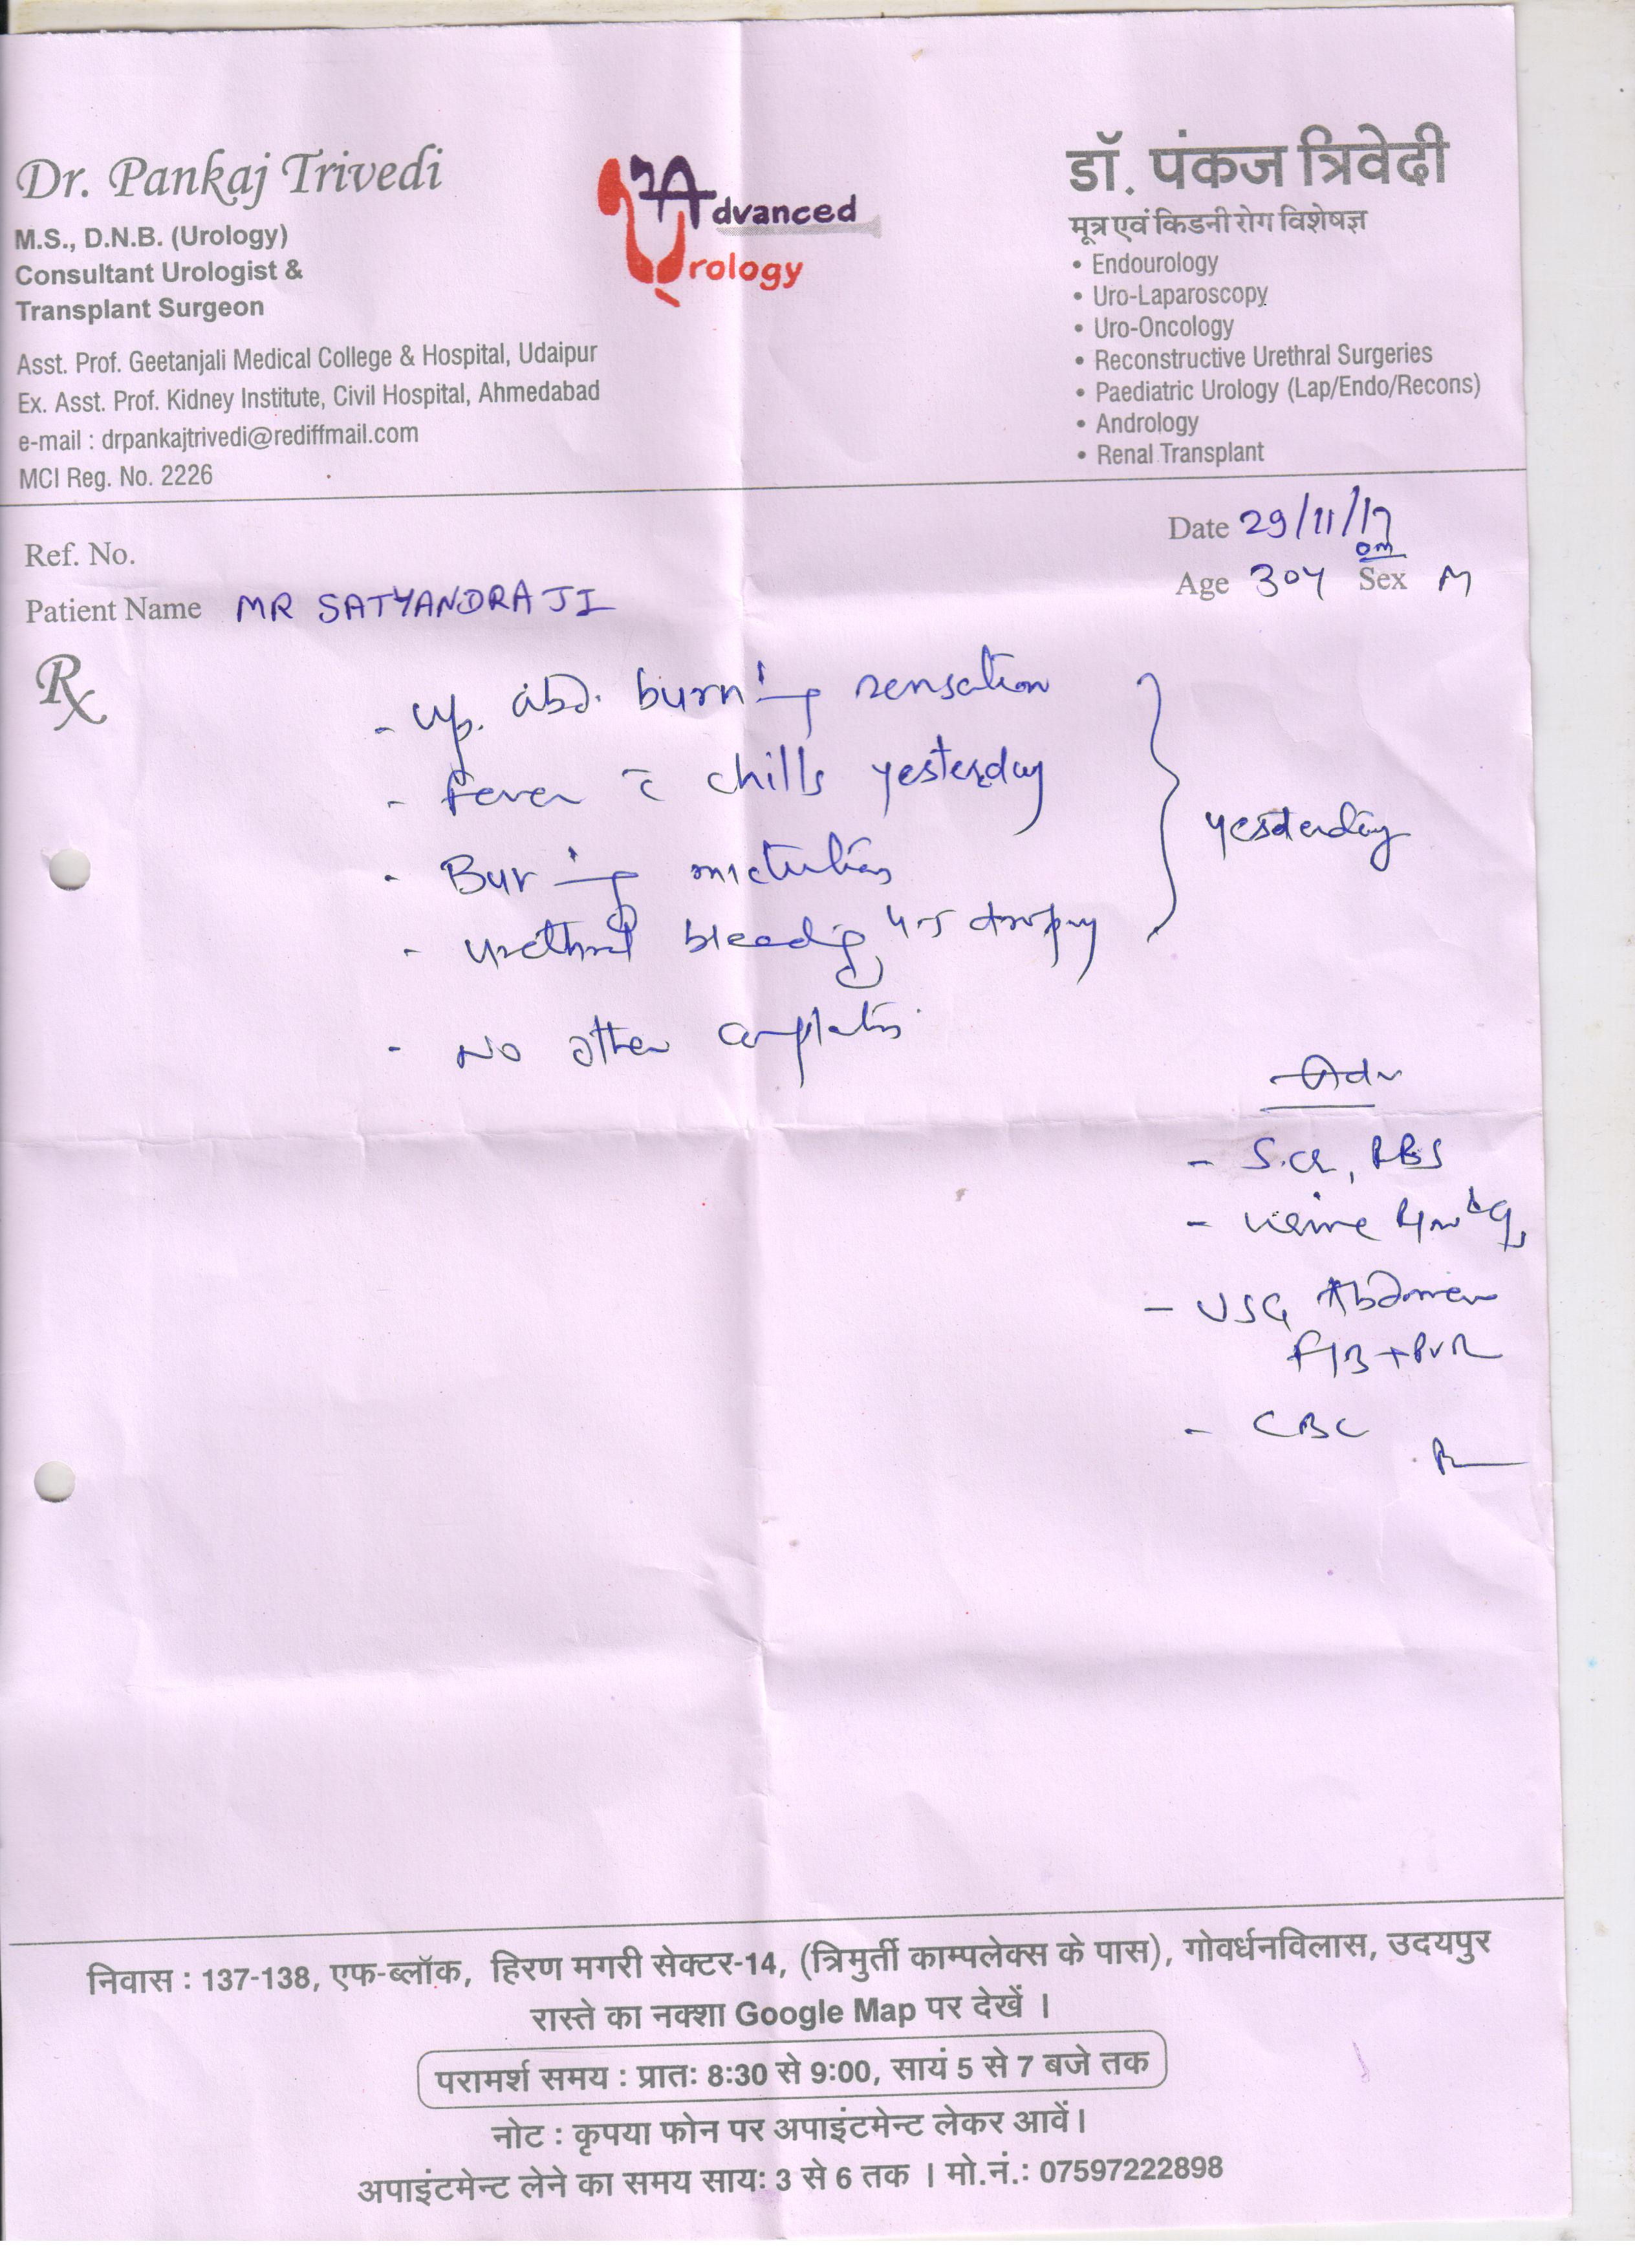 Dr. Pankaj Trivedi
M.S., D.N.B. (Urology)
Consultant Urologist &
Transplant Surgeon
Asst. Prof. Geetanjali Medical College & Hospital, Udaipur
Ex. Asst. Prof. Kidney Institute, Civil Hospital, Ahmedabad
e-mail : drpankajtrivedi@rediffmail.com
MCI Reg. No. 2226
Advanced
Urology
डॉ. पंकज त्रिवेदी
मूत्र एवं किडनी रोग विशेषज्ञ
• Endourology
• Uro-Laparoscopy
• Uro-Oncology
• Reconstructive Urethral Surgeries
• Paediatric Urology (Lap/Endo/Recons)
• Andrology
• Renal Transplant
Date 29/11/17
Ref. No.
Age 30Y Sex M
Patient Name MR SATYANDRA JI
Rx
- up. abd. burning sensation
- fever c̄ chills yesterday
- Burning micturition
yesterday
- urethral bleeding 4-5
- No other complaints
Adv
- S.Cr, RBS
- Urine
- USG Abdomen
+ PVR
- CBC
निवास : 137-138, एफ-ब्लॉक, हिरण मगरी सेक्टर-14, (त्रिमुर्ती काम्पलेक्स के पास), गोवर्धनविलास, उदयपुर
रास्ते का नक्शा Google Map पर देखें ।
परामर्श समय : प्रातः 8:30 से 9:00, सायं 5 से 7 बजे तक
नोट : कृपया फोन पर अपाइंटमेन्ट लेकर आवें।
अपाइंटमेन्ट लेने का समय सायः 3 से 6 तक । मो.नं.: 07597222898